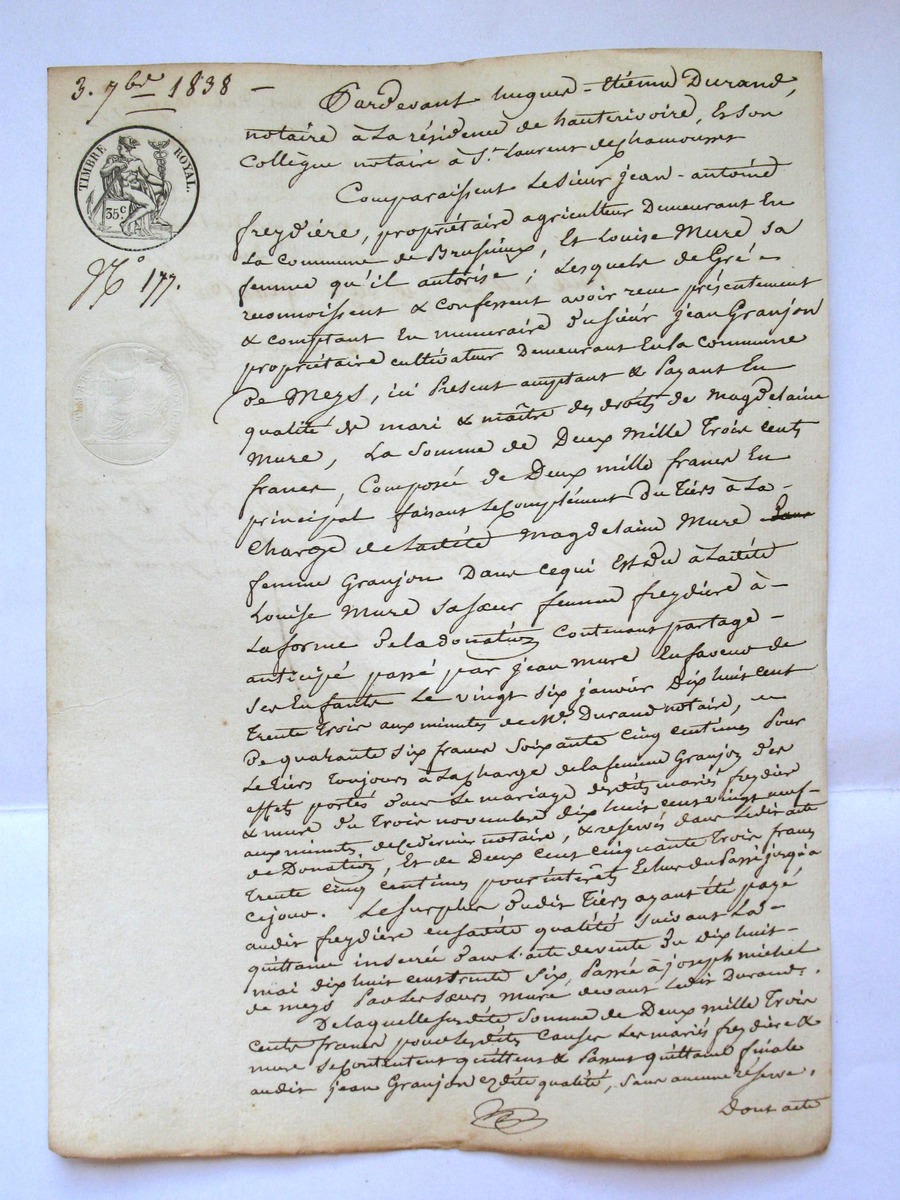 3. 7bre 1838 -
TIMBRE ROYAL.
35c
No 177.
Pardevant hugues-étienne Durand,
notaire à La résidence de hauterivoire, et son
Collègue notaire à St. Laurent de Chamousset
Comparaissent Le sieur jean-antoine
freydière, propriétaire agriculteur Demeurant En
La Commune de Brussieux, Et Louise Mure sa
femme qu'il autorise; Lesquels de Gré
reconnoissent & confessent avoir reçu présentement
& comptant En numéraire du sieur jean Granjon
propriétaire cultivateur Demeurant En la commune
De Meys, ici Présent acceptant & Payant En
qualité de mari & maître des droits de Magdelaine
Mure, La somme de Deux Mille Trois cents
francs, Composée de Deux mille francs En
principal faisant Le Complément du Tiers à La
Charge de Ladite Magdelaine Mure
femme Granjon Dans Cequi Est Du à Ladite
Louise Mure sa sœur femme freydière à
La forme de la Donation Contenant partage
anticipé passé par jean mure En faveur de
ses Enfants Le vingt six janvier Dix huit cent
Trente Trois aux minutes de Me. Durand notaire,
De quarante six francs soixante cinq centimes Pour
Le tiers Toujours à La charge de la femme Granjon des
effets portés dans Le mariage desdits mariés freydière
& mure du Trois novembre dix huit cent vingt neuf
aux minutes de ce dernier notaire, & reservés dans Ledit acte
de Donation, Et de Deux cent cinquante Trois francs
Trente cinq centimes pour intérêts Echus du Passé jusqu'à
cejour. Le surplus dudit Tiers ayant été payé
audit freydière en sadite qualité suivant La
quittance inserée dans l'acte de vente du dix huit
mai dix huit cent trente six, Passée à joseph michel
de meys Par Les sœurs mure devant Ledit Durand.
De laquelle susdite somme de Deux mille Trois
cents francs pour lesdites Causes Les mariés freydière &
mure se contentent quittent & Passent quittance finale
audit jean Granjon esdite qualité, sans aucune réserve.
Dont acte